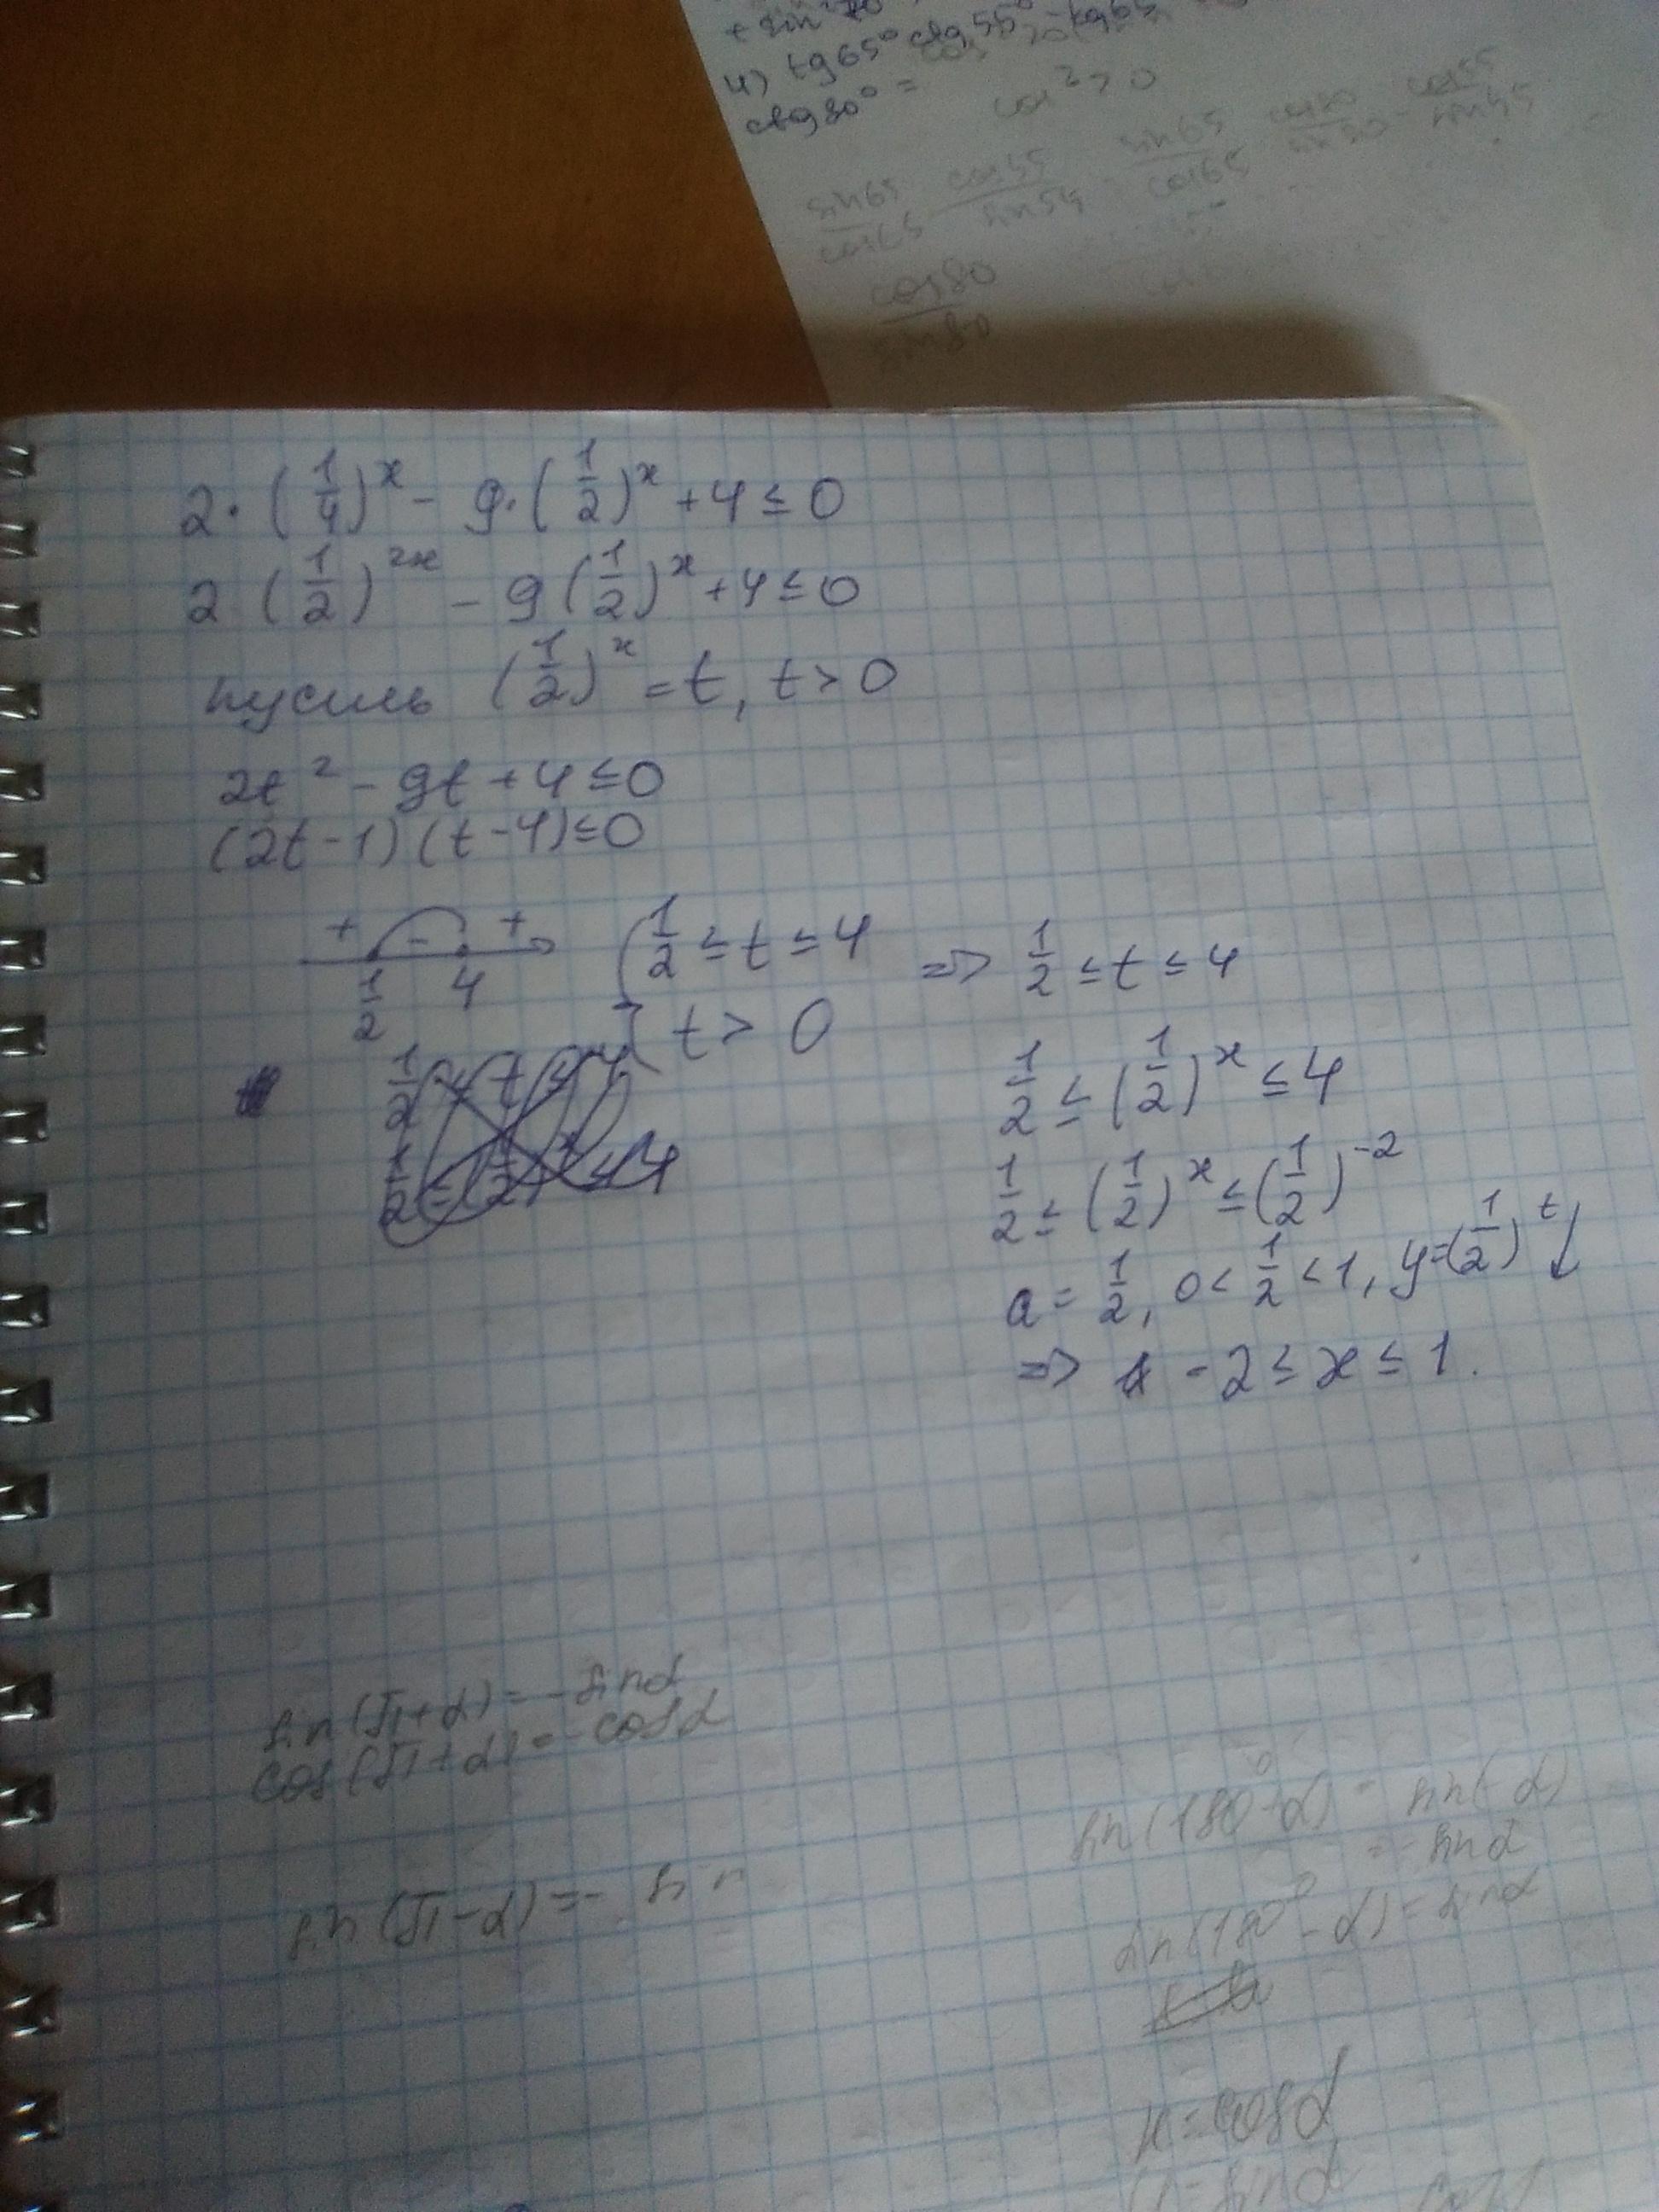 + sin²70
4) tg65° ctg55°
ctg80° =
cos² > 0
sin65/cos65 cos55/sin55 sin65/cos65
cos80/sin80
2·(1/4)^x - 9·(1/2)^x + 4 ≤ 0
2·(1/2)^2x - 9(1/2)^x + 4 ≤ 0
пусть (1/2)^x = t, t > 0
2t² - 9t + 4 ≤ 0
(2t-1)(t-4) ≤ 0
+ - +
1/2 4
{ 1/2 ≤ t ≤ 4
t > 0
⇒ 1/2 ≤ t ≤ 4
1/2 ≤ (1/2)^x ≤ 4
1/2 ≤ (1/2)^x ≤ (1/2)^-2
a = 1/2, 0 < 1/2 < 1, y = (1/2)^t ↓
⇒ -2 ≤ x ≤ 1.
sin(π+α) = -sinα
cos(π+α) = -cosα
sin(π-α) = - sin
sin(180°+α) = sin(-α)
= -sinα
sin(180° - α) = sinα
x = cosα
= sinα